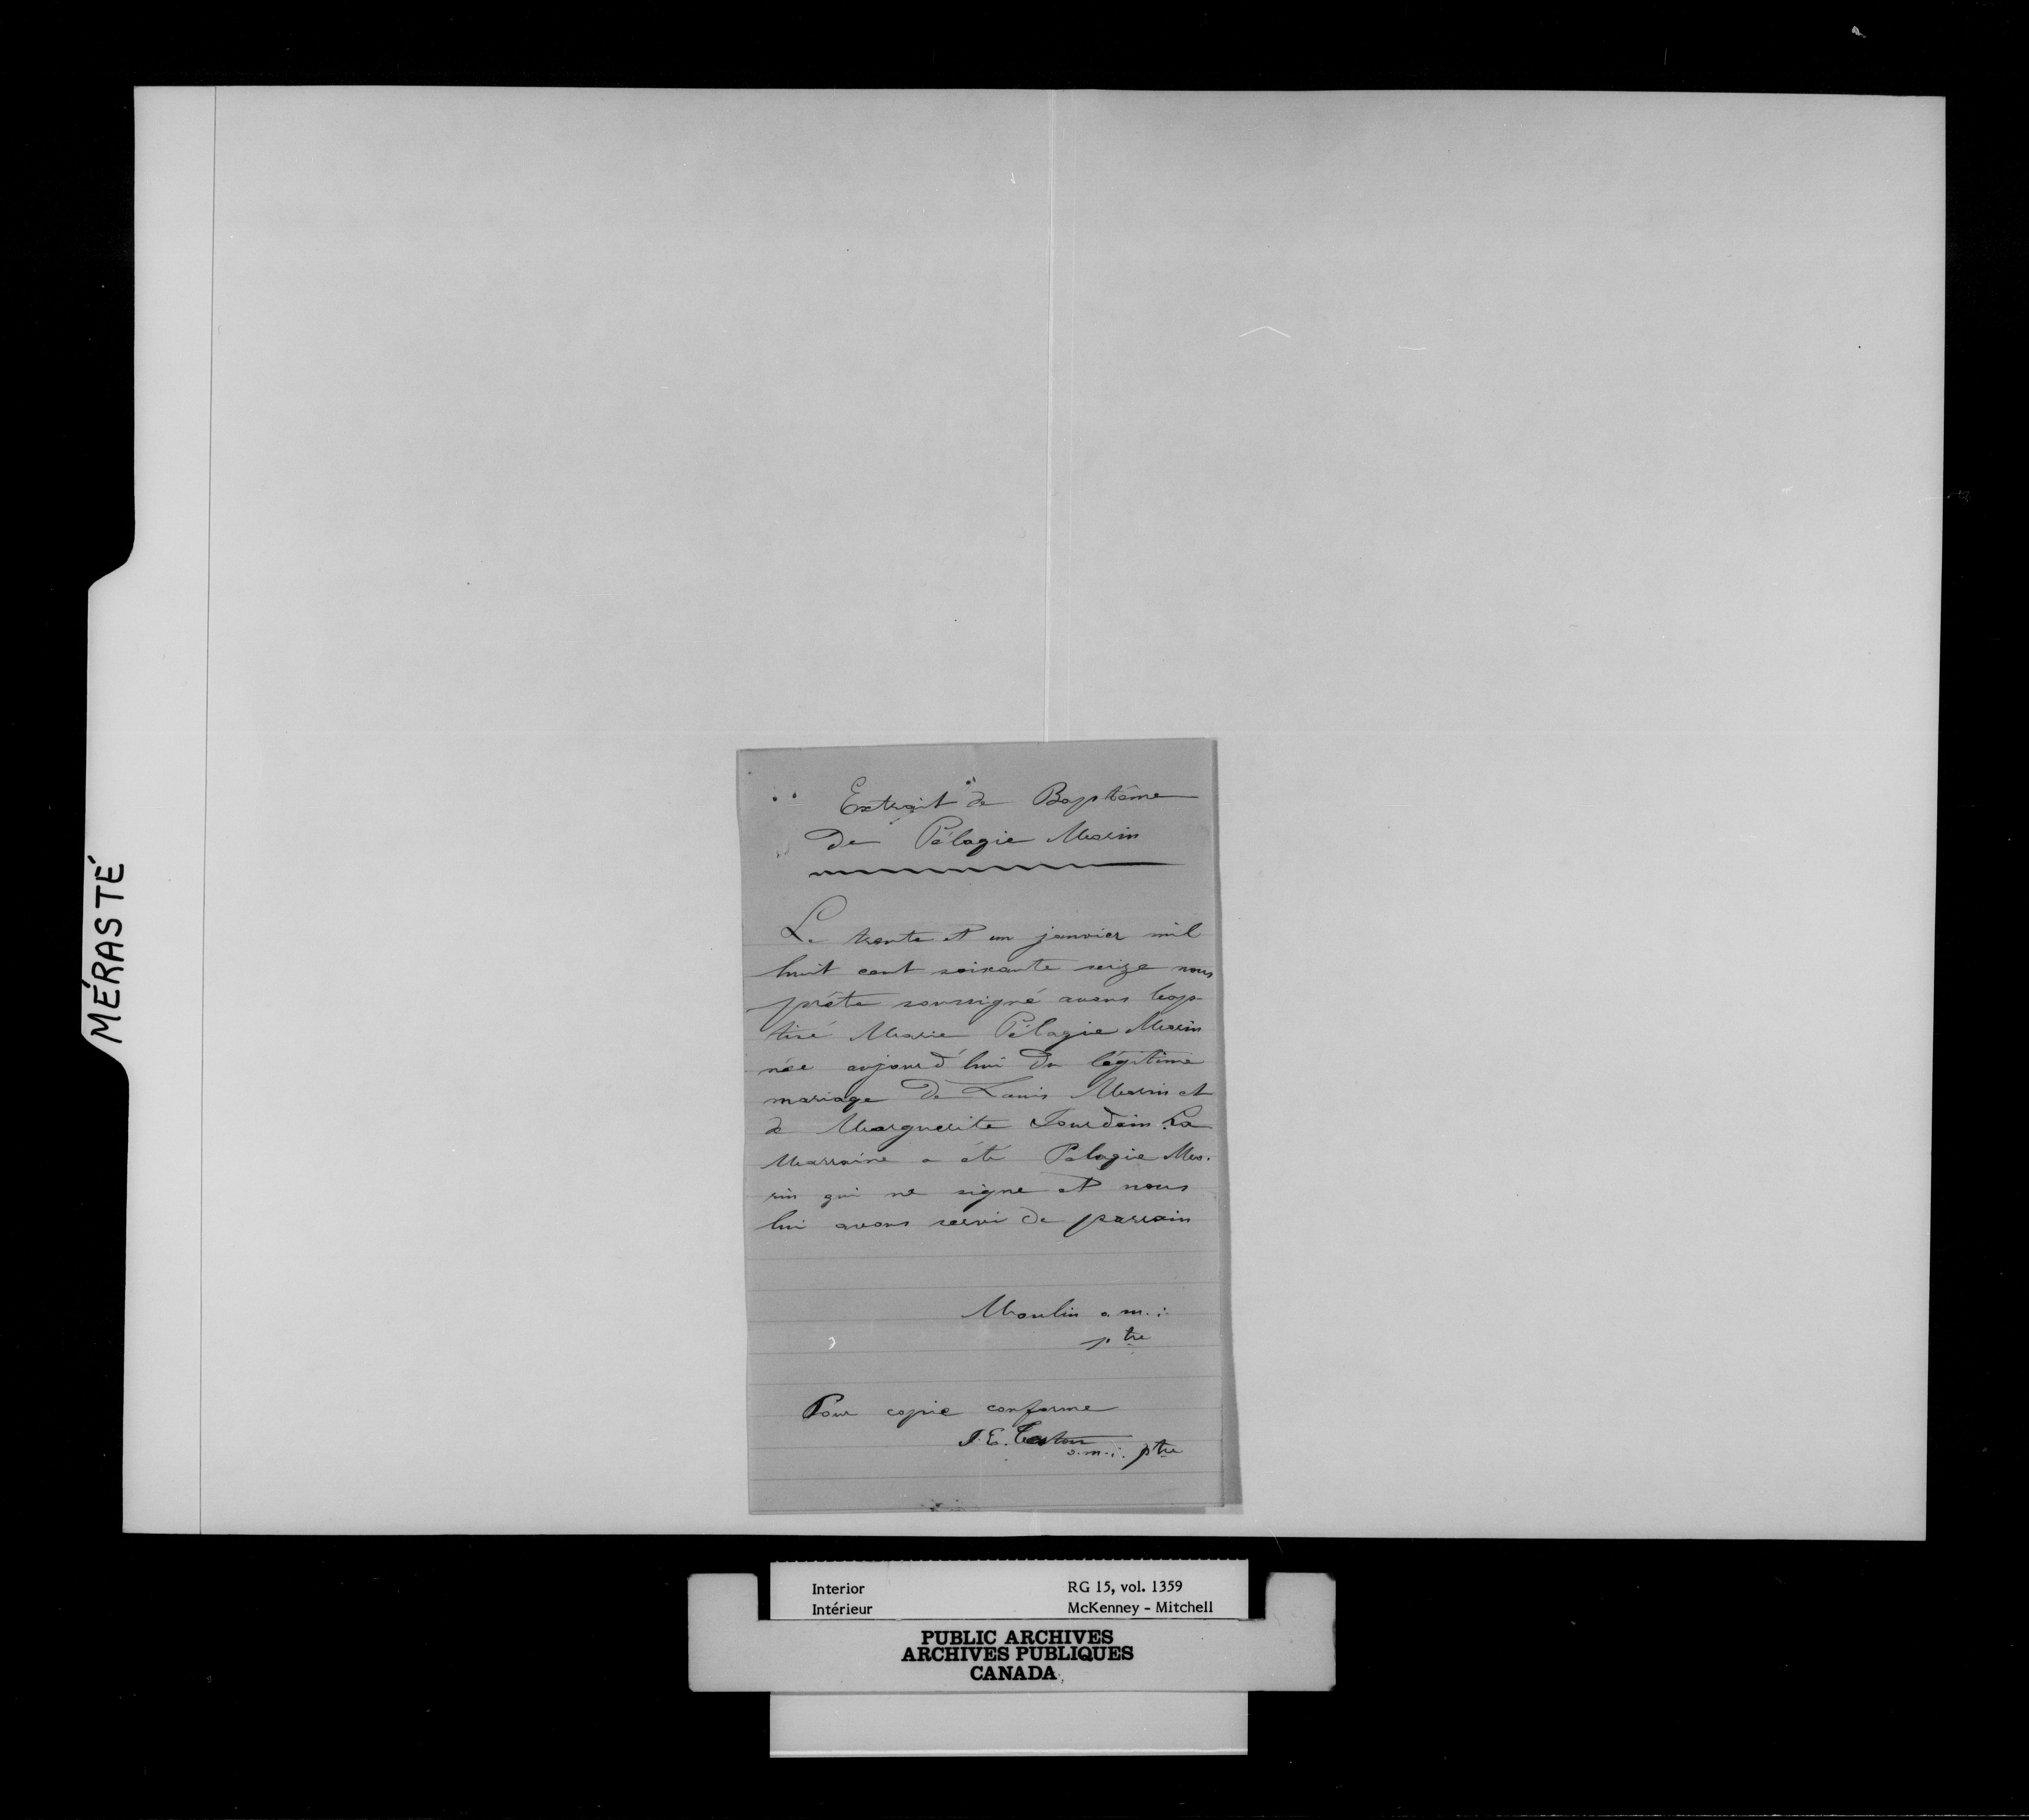 MÉRASTÉ
Extrait de Baptême
De Pélagie Morin
Le trente et un janvier mil
huit cent soixante seize nous
prête soussigné avons bap-
tisé Marie Pélagie Morin
née aujourd'hui du légitime
mariage de Louis Morin et
de Marguerite Jourdain. La
Marraine a été Pelagie Mo-
rin qui ne signe et nous
lui avons servi de parrain
Moulin o. m. i.
ptre
Pour copie conforme
J. E. Teston
o. m. i. ptre
Interior RG 15, vol. 1359
Intérieur McKenney - Mitchell
PUBLIC ARCHIVES
ARCHIVES PUBLIQUES
CANADA